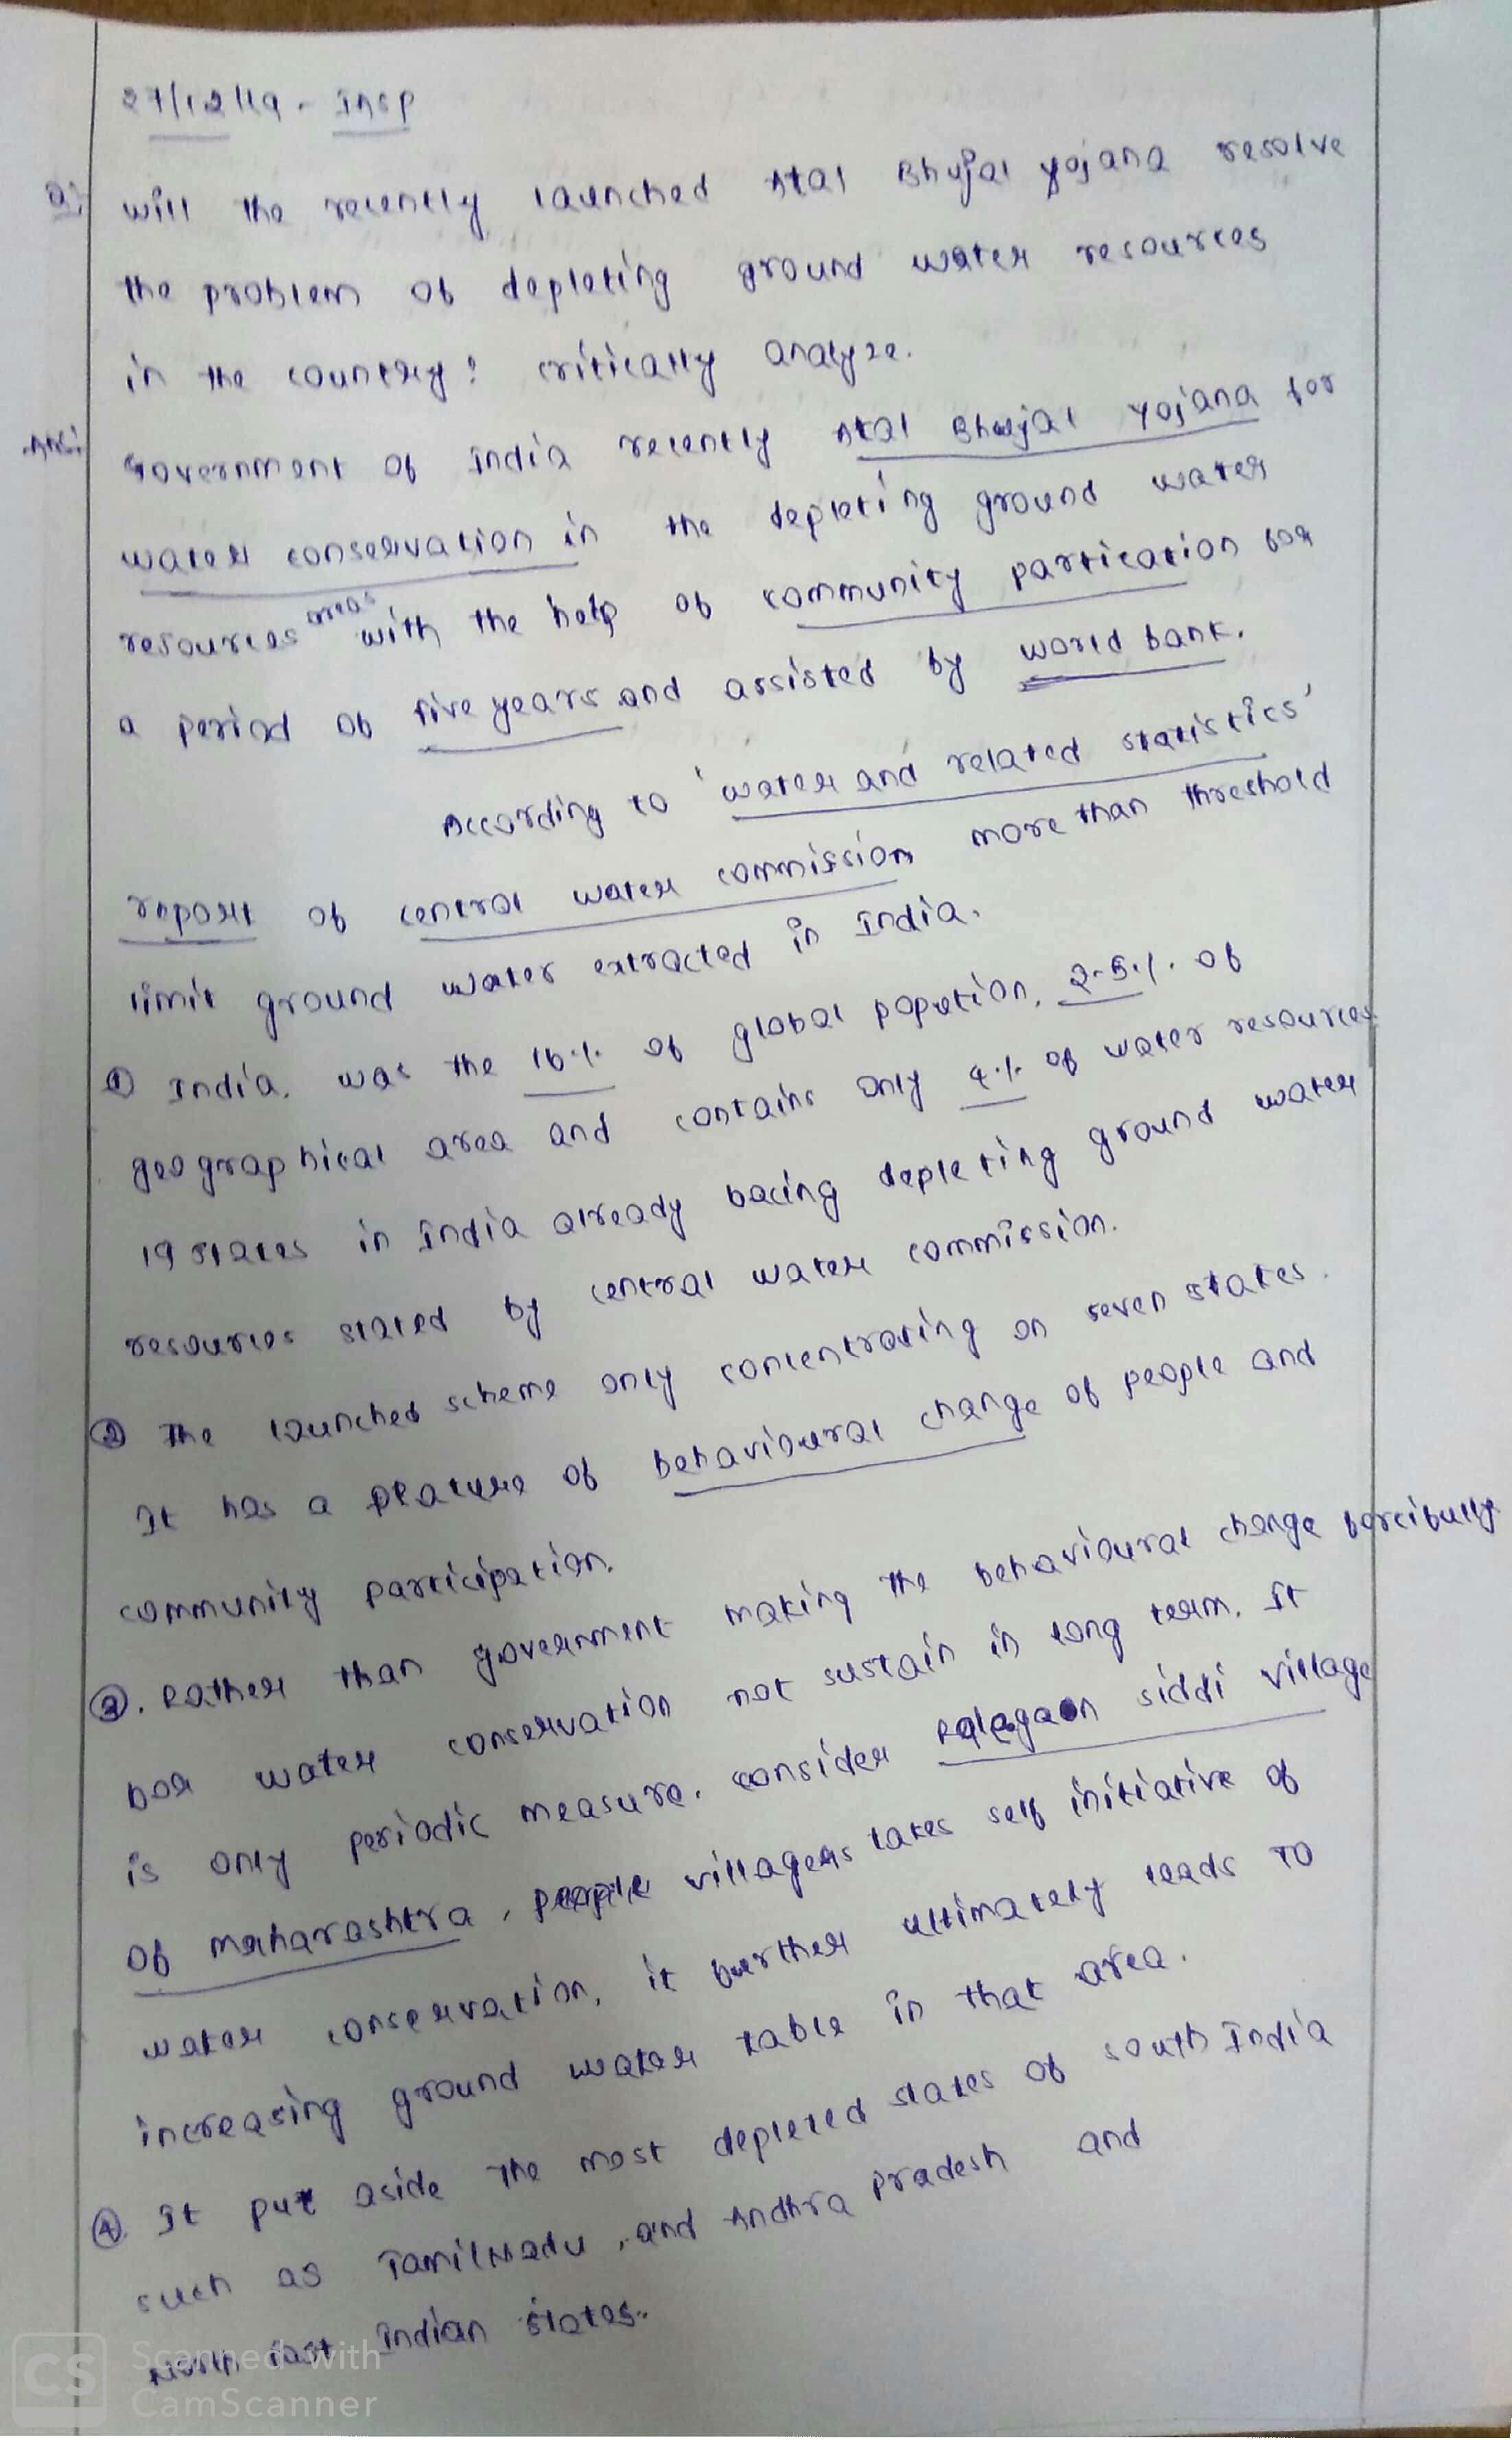 27/12/19 - INSP
Q: Will the recently launched Atal Bhujal yojana resolve
the problem of depleting ground water resources
in the country? critically analyze.
Ans: Government of India recently Atal Bhujal Yojana for
water conservation in the depleting ground water
resources areas with the help of community partication for
a period of five years and assisted by world bank.
According to 'water and related statistics'
report of central water commission more than threshold
limit ground water extracted in India.
① India, was the 16% of global popution, 2.5% of
geographical area and contains only 4% of water resources
19 states in India already facing depleting ground water
resources stated by central water commission.
② The launched scheme only concentrating on seven states.
It has a feature of behavioural change of people and
community participation.
③. Rather than government making the behavioural change forcibully
for water conservation not sustain in long term. It
is only periodic measure. consider siddi village
of maharashtra, villagers takes self initiative of
water conservation, it further ultimately leads to
increasing ground water table in that area.
④. It put aside the most depleted states of south India
such as TamilNadu, and Andhra pradesh and
North East Indian states.
CS Scanned with
CamScanner